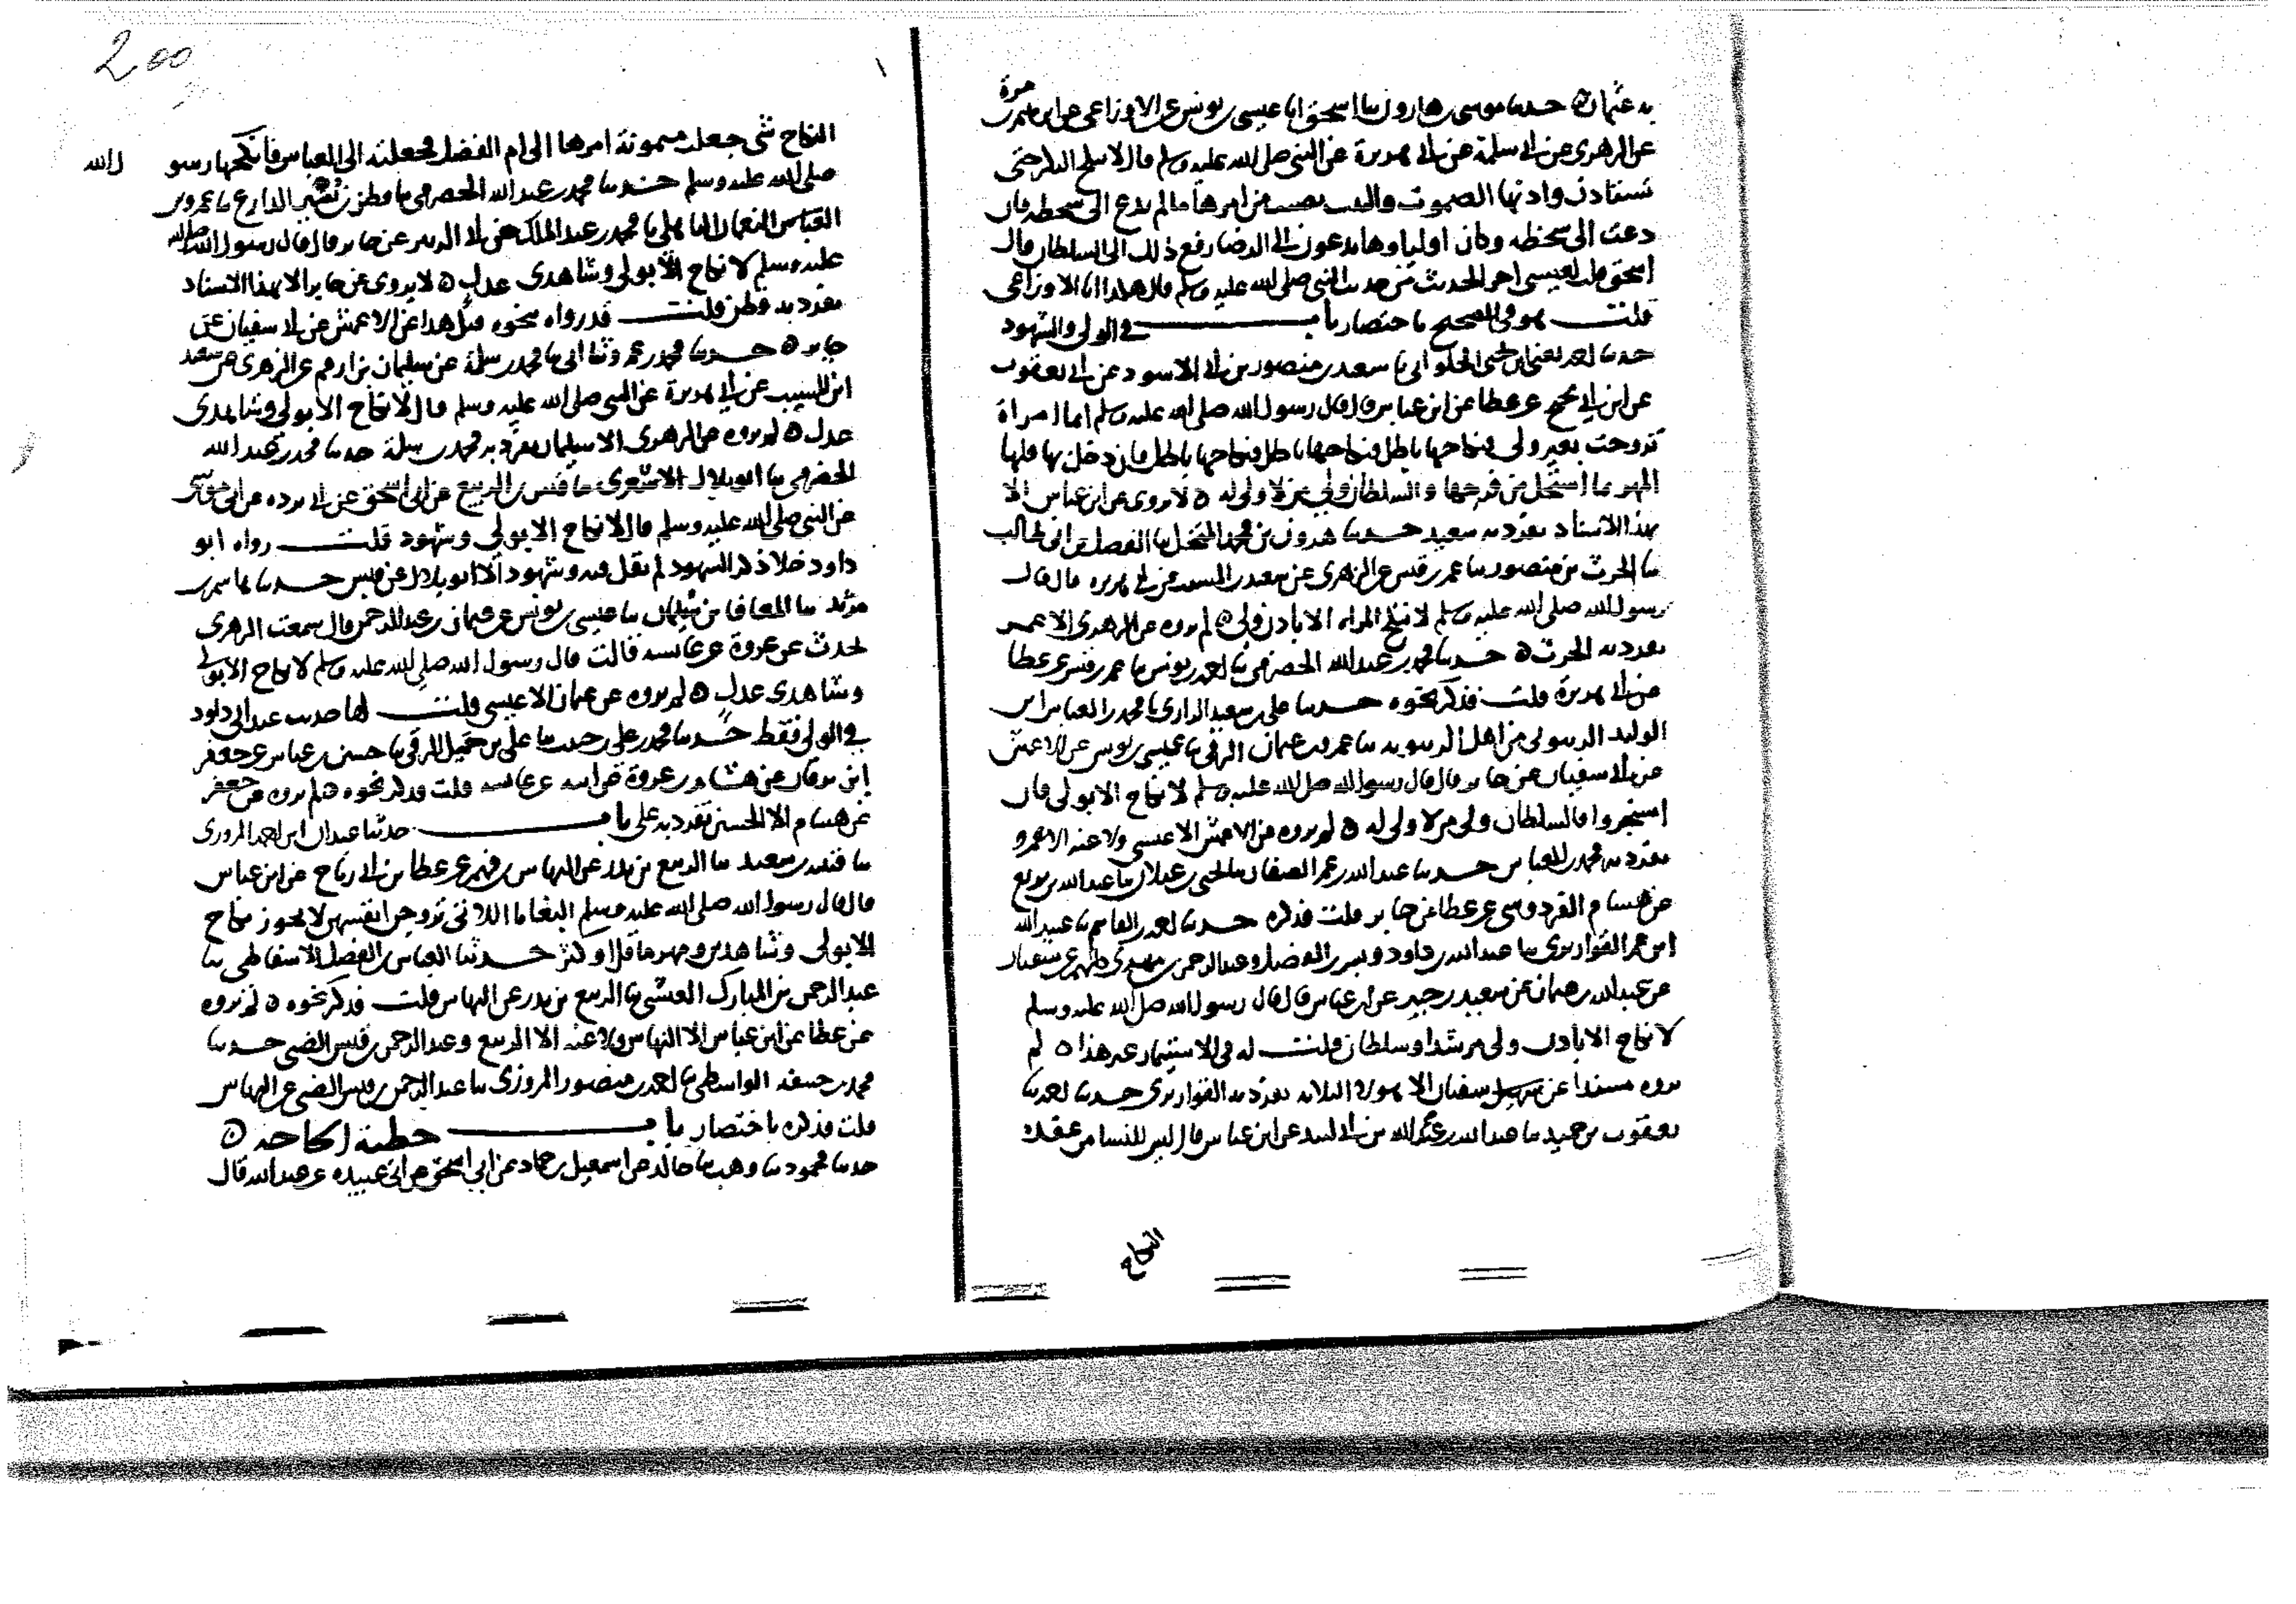 به عثمان ه حدثنا موسى بن هارون ثنا اسحق انا عيسى بن يونس عن الاوزاعى عن ابرهيم بن
مرة
عن الزهرى عن ابى سلمة عن ابى هريرة عن النبى صلى الله عليه وسلم قال لا تنكح البكر حتى
تستاذن واذنها الصموت والثيب تصيب من امرها ما لم تدع الى سخطه فان
دعت الى سخطه وكان اولياوها يدعون الى الرضا رفع ذلك الى السلطان قال
اسحق قلت لعيسى اخر الحديث من حديث النبى صلى الله عليه وسلم قال هكذا انا الاوزاعى
قلت هو فى الصحيح باختصار باب فى الولى والشهود
حدثنا احمد يعنى ابن يحيى الحلوانى ثنا سعيد بن منصور بن ابى الاسود عن ابى يعقوب
عن ابن ابى نجيح عن عطا عن ابن عباس قال قال رسول الله صلى الله عليه وسلم ايما امراة
تزوجت بغير ولى فنكاحها باطل فنكاحها باطل فنكاحها باطل فان دخل بها فلها
المهر بما استحل من فرجها والسلطان ولى من لا ولى له ه لا يروى عن ابن عباس الا
بهذا الاسناد تفرد به سعيد حدثنا هرون بن محمد المنخل ثنا الفضل بن ابى طالب
ثنا الحرث بن منصور ثنا عمر بن قيس عن الزهرى عن سعيد بن المسيب عن ابى هريره قال قال
رسول الله صلى الله عليه وسلم لا تنكح المراه الا باذن ولى ه لم يروه عن الزهرى الا عمر
تفرد به الحرث ه حدثنا محمد بن عبد الله الحضرمى ثنا احمد بن يونس ثنا عمر بن قيس عن عطا
عن ابى هريرة قلت فذكر نحوه حدثنا على بن سعيد الرازى ثنا محمد بن العباس بن
الوليد من اهل ثنا عمرو بن عثمان الرقى ثنا عيسى بن يونس عن الاعمش
عن ابى سفيان عن جابر قال قال رسول الله صلى الله عليه وسلم لا نكاح الا بولى فان
استجروا فالسلطان ولى من لا ولى له ه لم يروه عن الاعمش الا عيسى ولا عنه الا عمرو
تفرد به محمد بن العباس حدثنا عبد الله بن عمر الصفار ثنا يحيى بن غيلان ثنا عبد الله بن بزيع
عن هشام القردوسى عن عطا عن جابر قلت فذكره حدثنا احمد بن القاسم ثنا عبيد الله
ابن عمر القواريرى ثنا عبد الله بن داود وبشر بن المفضل وعبد الرحمن بن مهدى كلهم عن سفيان
عن عبد الله بن عثمان عن سعيد بن جبير عن ابن عباس قال قال رسول الله صلى الله عليه وسلم
لا نكاح الا باذن ولى مرشد او سلطان قلت له فى الاستيمار غير هذا ه لم
يروه مسندا عن سفيان الا هولا الثلاثه تفرد به القواريرى حدثنا احمد ثنا
يعقوب بن حميد ثنا عبد الله عن ابن عباس قال ليس للنسا من عقد
النكاح
2 00
النكاح شى جعلت ميمونة امرها الى ام الفضل فجعلته الى العباس فانكحها رسو ل الله
صلى الله عليه وسلم حدثنا محمد بن عبد الله الحضرمى ثنا قطن بن نسير الذارع ثنا عمرو بن
العباس النعمان الباهلى ثنا محمد بن عبد الملك عن ابى الزبير عن جابر قال قال رسول الله صلى الله
عليه وسلم لا نكاح الا بولى وشاهدى عدل ه لا يروى عن جابر الا بهذا الاسناد
تفرد به قطن قلت قد رواه نحوه قبل هذا عن الاعمش عن ابى سفيان عن
جابر ه حدثنا محمد بن عمرو ثنا ابى ثنا محمد بن سلمة عن سليمان بن ارقم عن الزهرى عن سعيد
ابن المسيب عن ابى هريرة عن النبى صلى الله عليه وسلم قال لا نكاح الا بولى وشاهدى
عدل ه لم يروه عن الزهرى الا سليمان تفرد به محمد بن سلمة حدثنا محمد بن عبد الله
الحضرمى ثنا ابو بلال الاشعرى ثنا قيس بن الربيع عن ابى اسحق عن ابى برده عن ابى موسى
عن النبى صلى الله عليه وسلم قال لا نكاح الا بولى وشهود قلت رواه ابو
داود خلا ذكر الشهود لم يقل فيه وشهود الا ابو بلال عن قيس حدثنا
مرثد ثنا المعافا بن سليمان ثنا عيسى بن يونس عن عثمان بن عبد الرحمن قال سمعت الزهرى
يحدث عن عروة عن عائشه قالت قال رسول الله صلى الله عليه وسلم لا نكاح الا بولى
وشاهدى عدل ه لم يروه عن عثمان الا عيسى قلت لها حديث عند ابى داود
فى الولى فقط حدثنا محمد بن على بن حبيب ثنا على بن جميل الرقى ثنا حسين بن عياش عن جعفر
ابن برقان عن هشام بن عروة عن ابيه عن عائشه قلت فذكر نحوه ه لم يروه عن جعفر
عن هشام الا الحسين تفرد به على باب حدثنا عبدان ابن احمد المروزى
ثنا قتيبه بن سعيد ثنا الربيع بن بدر عن النهاس بن قهم عن عطا بن ابى رباح عن ابن عباس
قال قال رسول الله صلى الله عليه وسلم البغايا اللاتى تزوجن انفسهن لا يجوز نكاح
الا بولى وشاهدين ومهر ما قل او كثر حدثنا العباس بن الفضل الاسفاطى ثنا
عبد الرحمن بن المبارك العيشى ثنا الربيع بن بدر عن النهاس قلت فذكر نحوه ه لم يروه
عن عطا عن ابن عباس الا النهاس ولا عنه الا الربيع وعبد الرحمن بن قيس الضبى حدثنا
محمد بن حنيفه الواسطى ثنا احمد بن منصور المروزى ثنا عبد الرحمن بن قيس الضبى عن النهاس
قلت فذكره باختصار باب خطبة الحاجه ه
حدثنا محمود ثنا وهب ثنا خالد عن اسمعيل بن حماد عن ابى اسحق عن ابى عبيده عن عبد الله قال